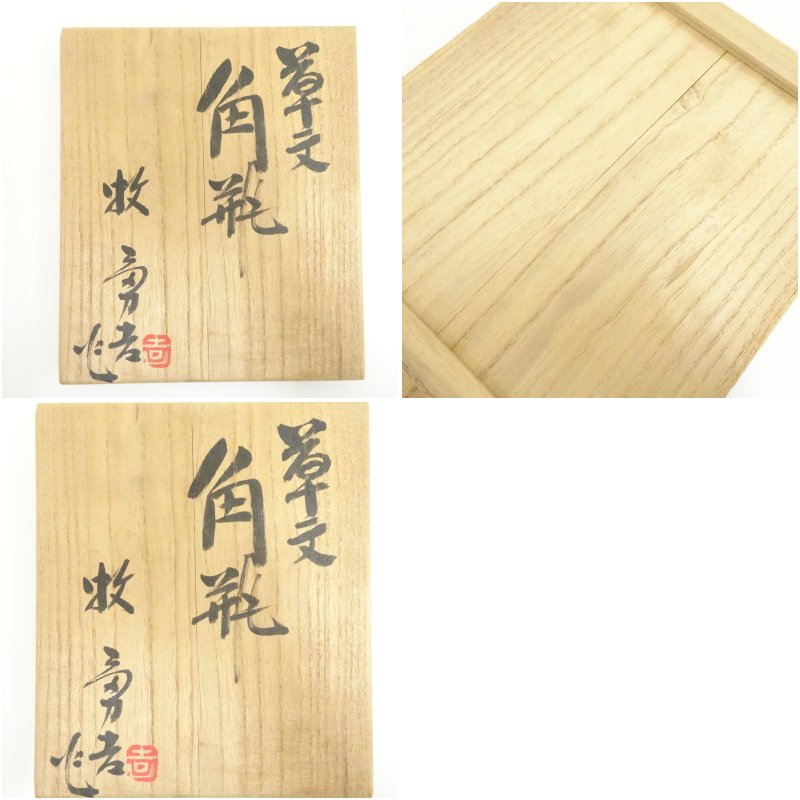 草文
角瓶
牧
勇吉
作
吉
草文
角瓶
牧
勇吉
作
吉